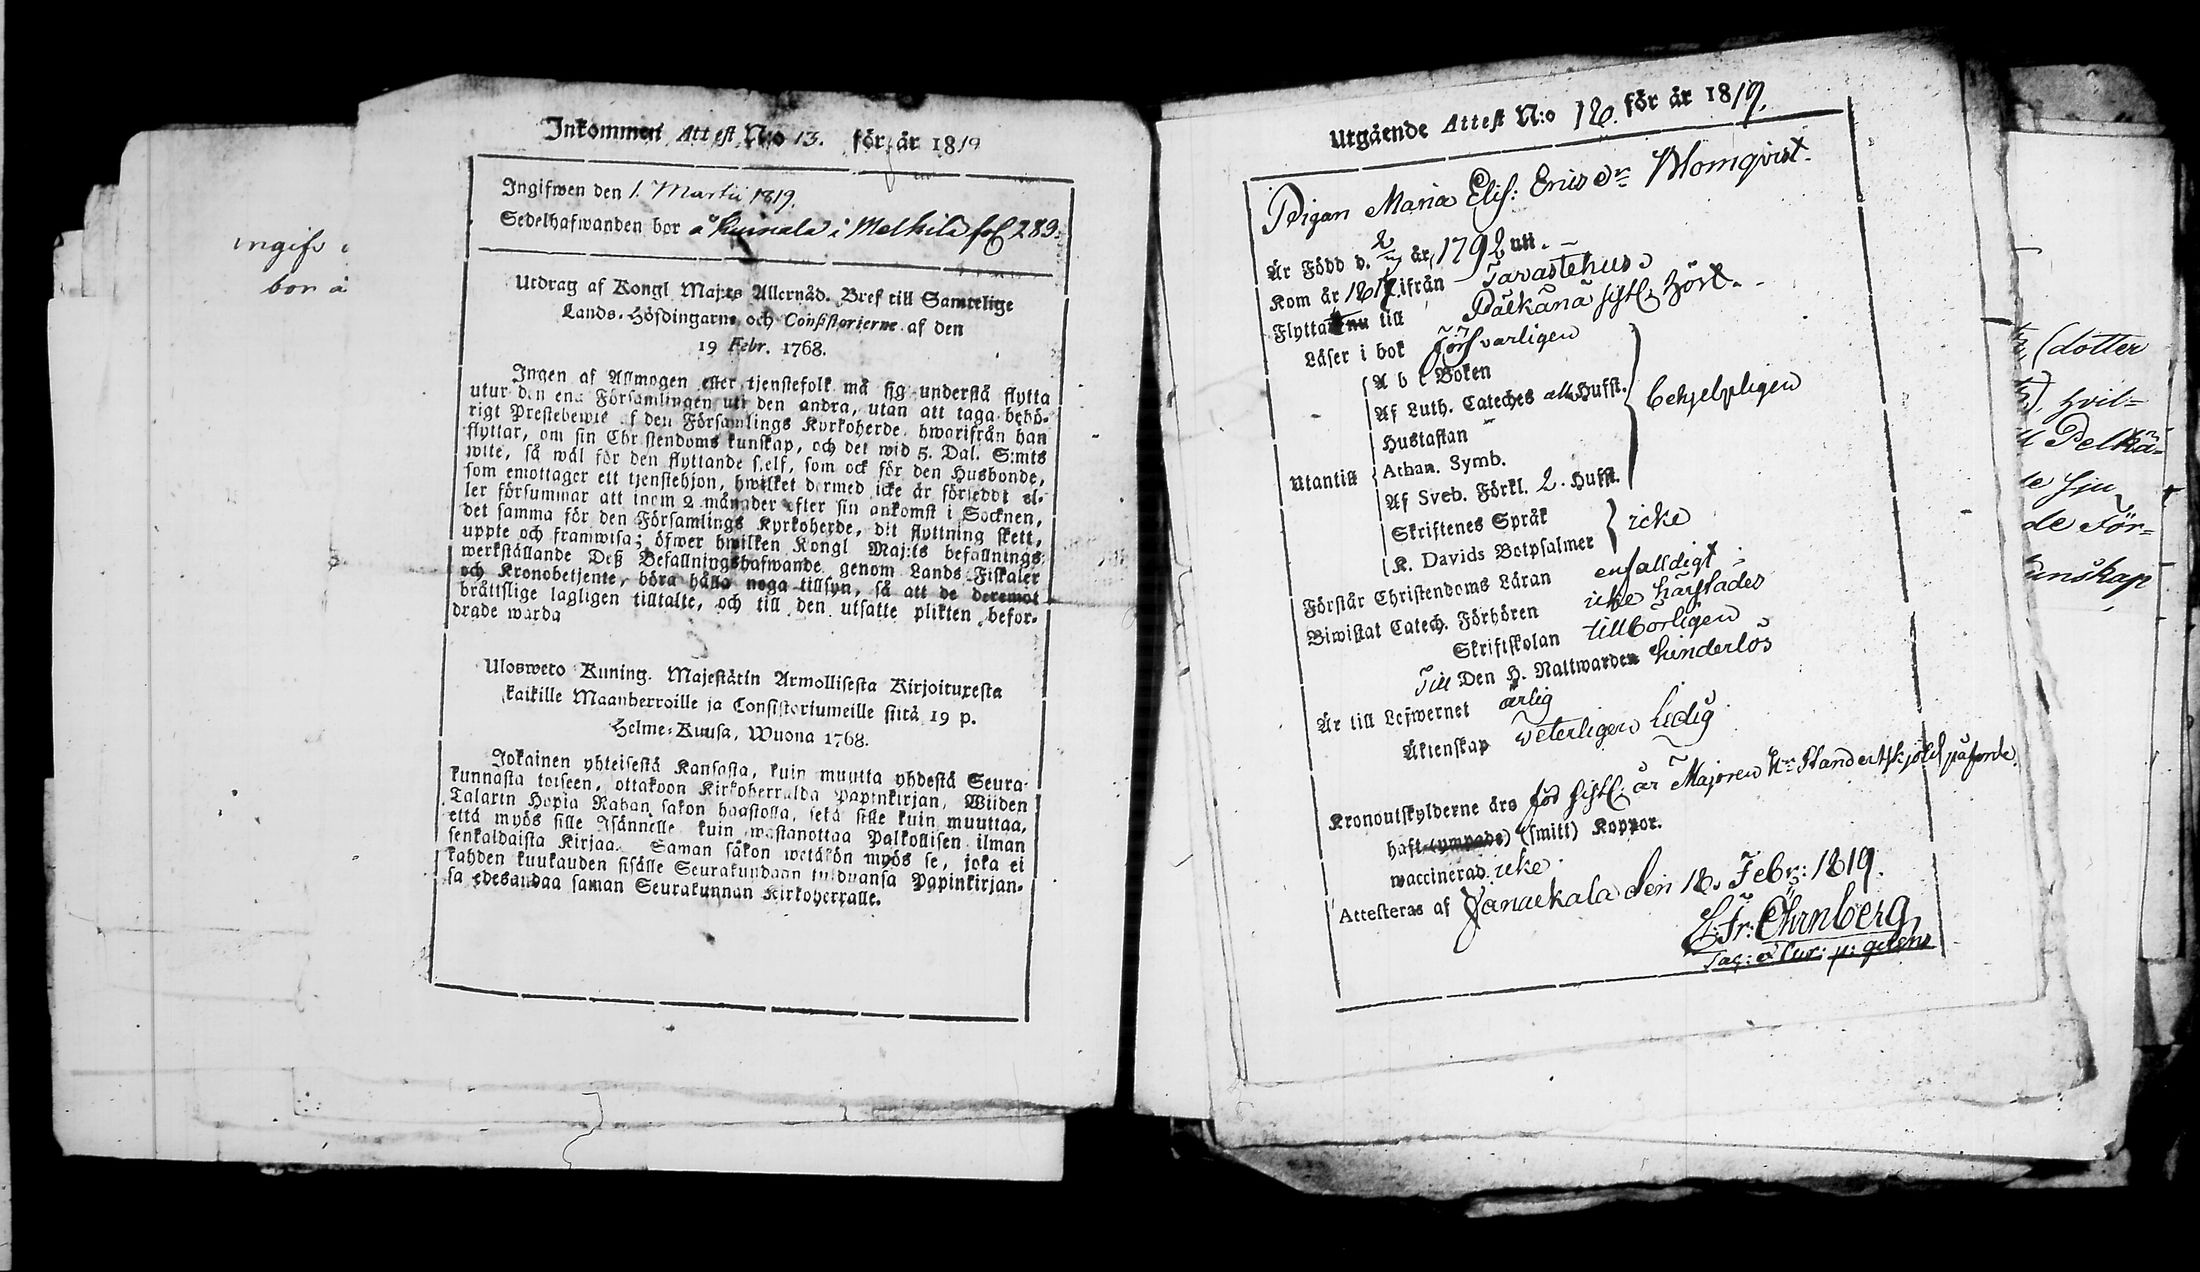 ingifv
bor å
Inkommen Attest N:o 13. för år 1819
Ingifwen den 1. Martii 1819.
Sedelhafwanden bor å Kuisala i Melkila fol 289.
Utdrag af Kongl Maj:ts Allernåd. Bref till Samtelige
Lands-Höfdingarne och Consistorierne af den
19 Febr. 1768.
Ingen af Allmogen eller tjenstefolk må sig understå flytta
utur den ena Församlingen uti den andra, utan att taga behö-
rigt Prestebewis af den Församlings Kyrkoherde, hwarifrån han
flyttar, om sin Christendoms kunskap, och det wid 5. Dal. S:mts
wite, så wäl för den flyttande sjelf, som ock för den Husbonde,
som emottager ett tjenstehjon, hwilket dermed icke är försedt el-
ler försummar att inom 2 månader efter sin ankomst i Socknen,
det samma för den Församlings Kyrkoherde, dit flyttning skett,
uppte och framwisa; öfwer hwilken Kongl Maj:ts befallnings
werkställande Deß Befallningshafwande genom Lands Fiskaler
och Kronobetjente, böra hålla noga tillsyn, så att de deremot
bråttslige lagligen tilltalte, och till den utsatte plikten befor-
drade warda
Ulosweto Kuning. Majestätin Armollisesta Kirjoituxesta
kaikille Maanherroille ja Consistoriumeille siitä 19 p.
Helme-Kuusa, Wuona 1768.
Jokainen yhteisestä Kansasta, kuin muutta yhdestä Seura-
kunnasta toiseen, ottakoon Kirkoherralda Papinkirjan, Wiiden
Talarin Hopia Rahan sakon haastolla, sekä sille kuin muuttaa,
että myös sille Isännelle kuin wastanottaa Palkollisen ilman
senkaldaista Kirjaa. Saman sakon wetäkön myös se, joka ei
kahden kuukauden sisälle Seurakundaan tulduansa Papinkirjan-
sa edesandaa saman Seurakunnan Kirkoherralle.
Utgående Attest N:o 18. för år 1819.
Pigan Maria Elis: Ericsdr Blomqvist.
Är Född d. 2/7 år 1792 uti
Kom år 1817 ifrån Tavastehus
Flyttat nu till Pälkänä sistl. Höst.
Läser i bok försvarligen
Utantill
A b c Boken
Af Luth. Cateches alla Hufst.
Hustaflan
Athan. Symb.
behjelpligen
Af Sveb. Förkl. 2. Hufst.
Skriftenes Språk
K. Davids Botpsalmer
icke
Förstår Christendoms Läran enfalldigt
Biwistat Catech. Förhören icke härstädes
Skriftskolan tillbörligen
Till Den H. Nattwarden hinderlös
Är till Lefwernet ärlig
Äktenskap veterligen ledig
Kronoutskylderne års för sistl. år Majoren Hr Standertskjöld påförde
haft (ympade) (smitt) Koppor.
waccinerad icke
Attesteras af Janackala den 18. Febr: 1819.
Fr: Öhrnberg
(dotter
hvil=
Pelkä=
sju
de För=
unskap